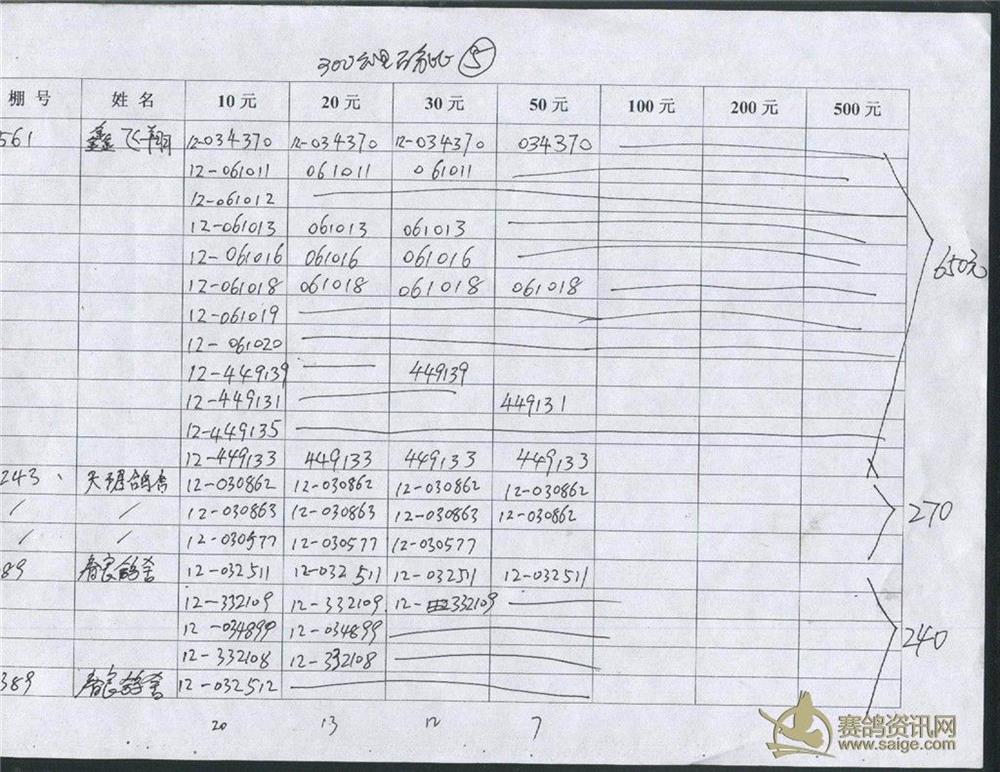 300公里 ⑤
棚号 姓名 10元 20元 30元 50元 100元 200元 500元
561 鑫飞翔 12-034370 12-034370 12-034370 034370
12-061011 061011 061011
12-061012
12-061013 061013 061013
12-061016 061016 061016
12-061018 061018 061018 061018
650元
12-061019
12-061020
12-449139 449139
12-449131 449131
12-449135
12-449133 449133 449133 449133
243、 天 鸽舍 12-030862 12-030862 12-030862 12-030862
/ / 12-030863 12-030863 12-030863 12-030862
270
/ / 12-030577 12-030577 12-030577
89 鸽舍 12-032511 12-032511 12-032511 12-032511
12-332109 12-332109 12-332109
12-034899 12-034899
240
12-332108 12-332108
389 鸽舍 12-032512
20 13 12 7
赛鸽资讯网
www.saige.com